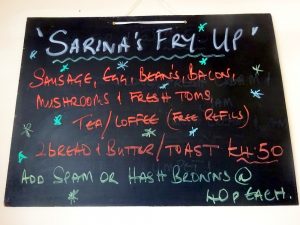 "SARINA'S FRY UP"
SAUSAGE, EGG, BEAN'S, BACON,
MUSHROOMS & FRESH TOMS,
TEA/COFFEE (FREE REFILS)
2 BREAD & BUTTER/TOAST £4.50
ADD SPAM OR HASH BROWNS @
40P EACH.